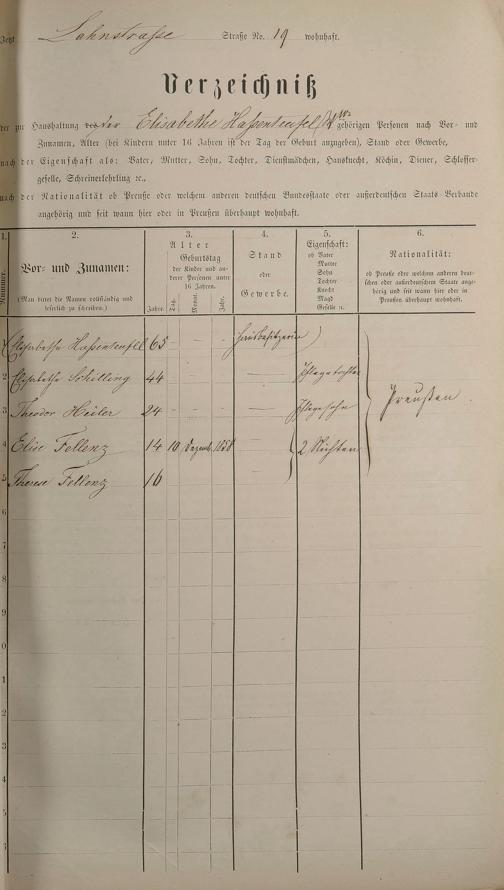 Jetzt Lahnstraße Straße No. 19 wohnhaft.
Verzeichniß
der zur Haushaltung der Elisabethe Haßenteufel gehörigen Personen nach Vor- und
Zunamen, Alter (bei Kindern unter 16 Jahren ist der Tag der Geburt anzugeben), Stand oder Gewerbe,
nach der Eigenschaft als: Vater, Mutter, Sohn, Tochter, Dienstmädchen, Hausknecht, Köchin, Diener, Schlosser-
geselle, Schreinerlehrling ꝛc.,
nach der Nationalität ob Preuße oder welchem anderen deutschen Bundesstaate oder außerdeutschen Staats-Verbande
angehörig und seit wann hier oder in Preußen überhaupt wohnhaft.
1. 2. 3. 4. 5. 6.
Nummer.
Vor- und Zunamen:
(Man bittet die Namen vollständig und
leserlich zu schreiben.)
Alter
Geburtstag
der Kinder und an-
derer Personen unter
16 Jahren.
Jahre. Tag. Monat. Jahr.
Stand
oder
Gewerbe.
Eigenschaft:
ob Vater
Mutter
Sohn
Tochter
Knecht
Magd
Geselle ꝛc.
Nationalität:
ob Preuße oder welchem anderen deut-
schen oder außerdeutschen Staate ange-
hörig und seit wann hier oder in
Preußen überhaupt wohnhaft.
1 Elisabethe Haßenteufel 65 - - - Hausbesitzerin
2 Elisabethe Schilling 44 - - - — Pflegetochter
3 Theodor Heiler 24 - - - — Pflegesohn Preußen
4 Elise Fellenz 14 10 Dezemb. 1858 — 2 Nichten
5 Therese Fellenz 16
6
7
8
9
0
1
2
3
4
5